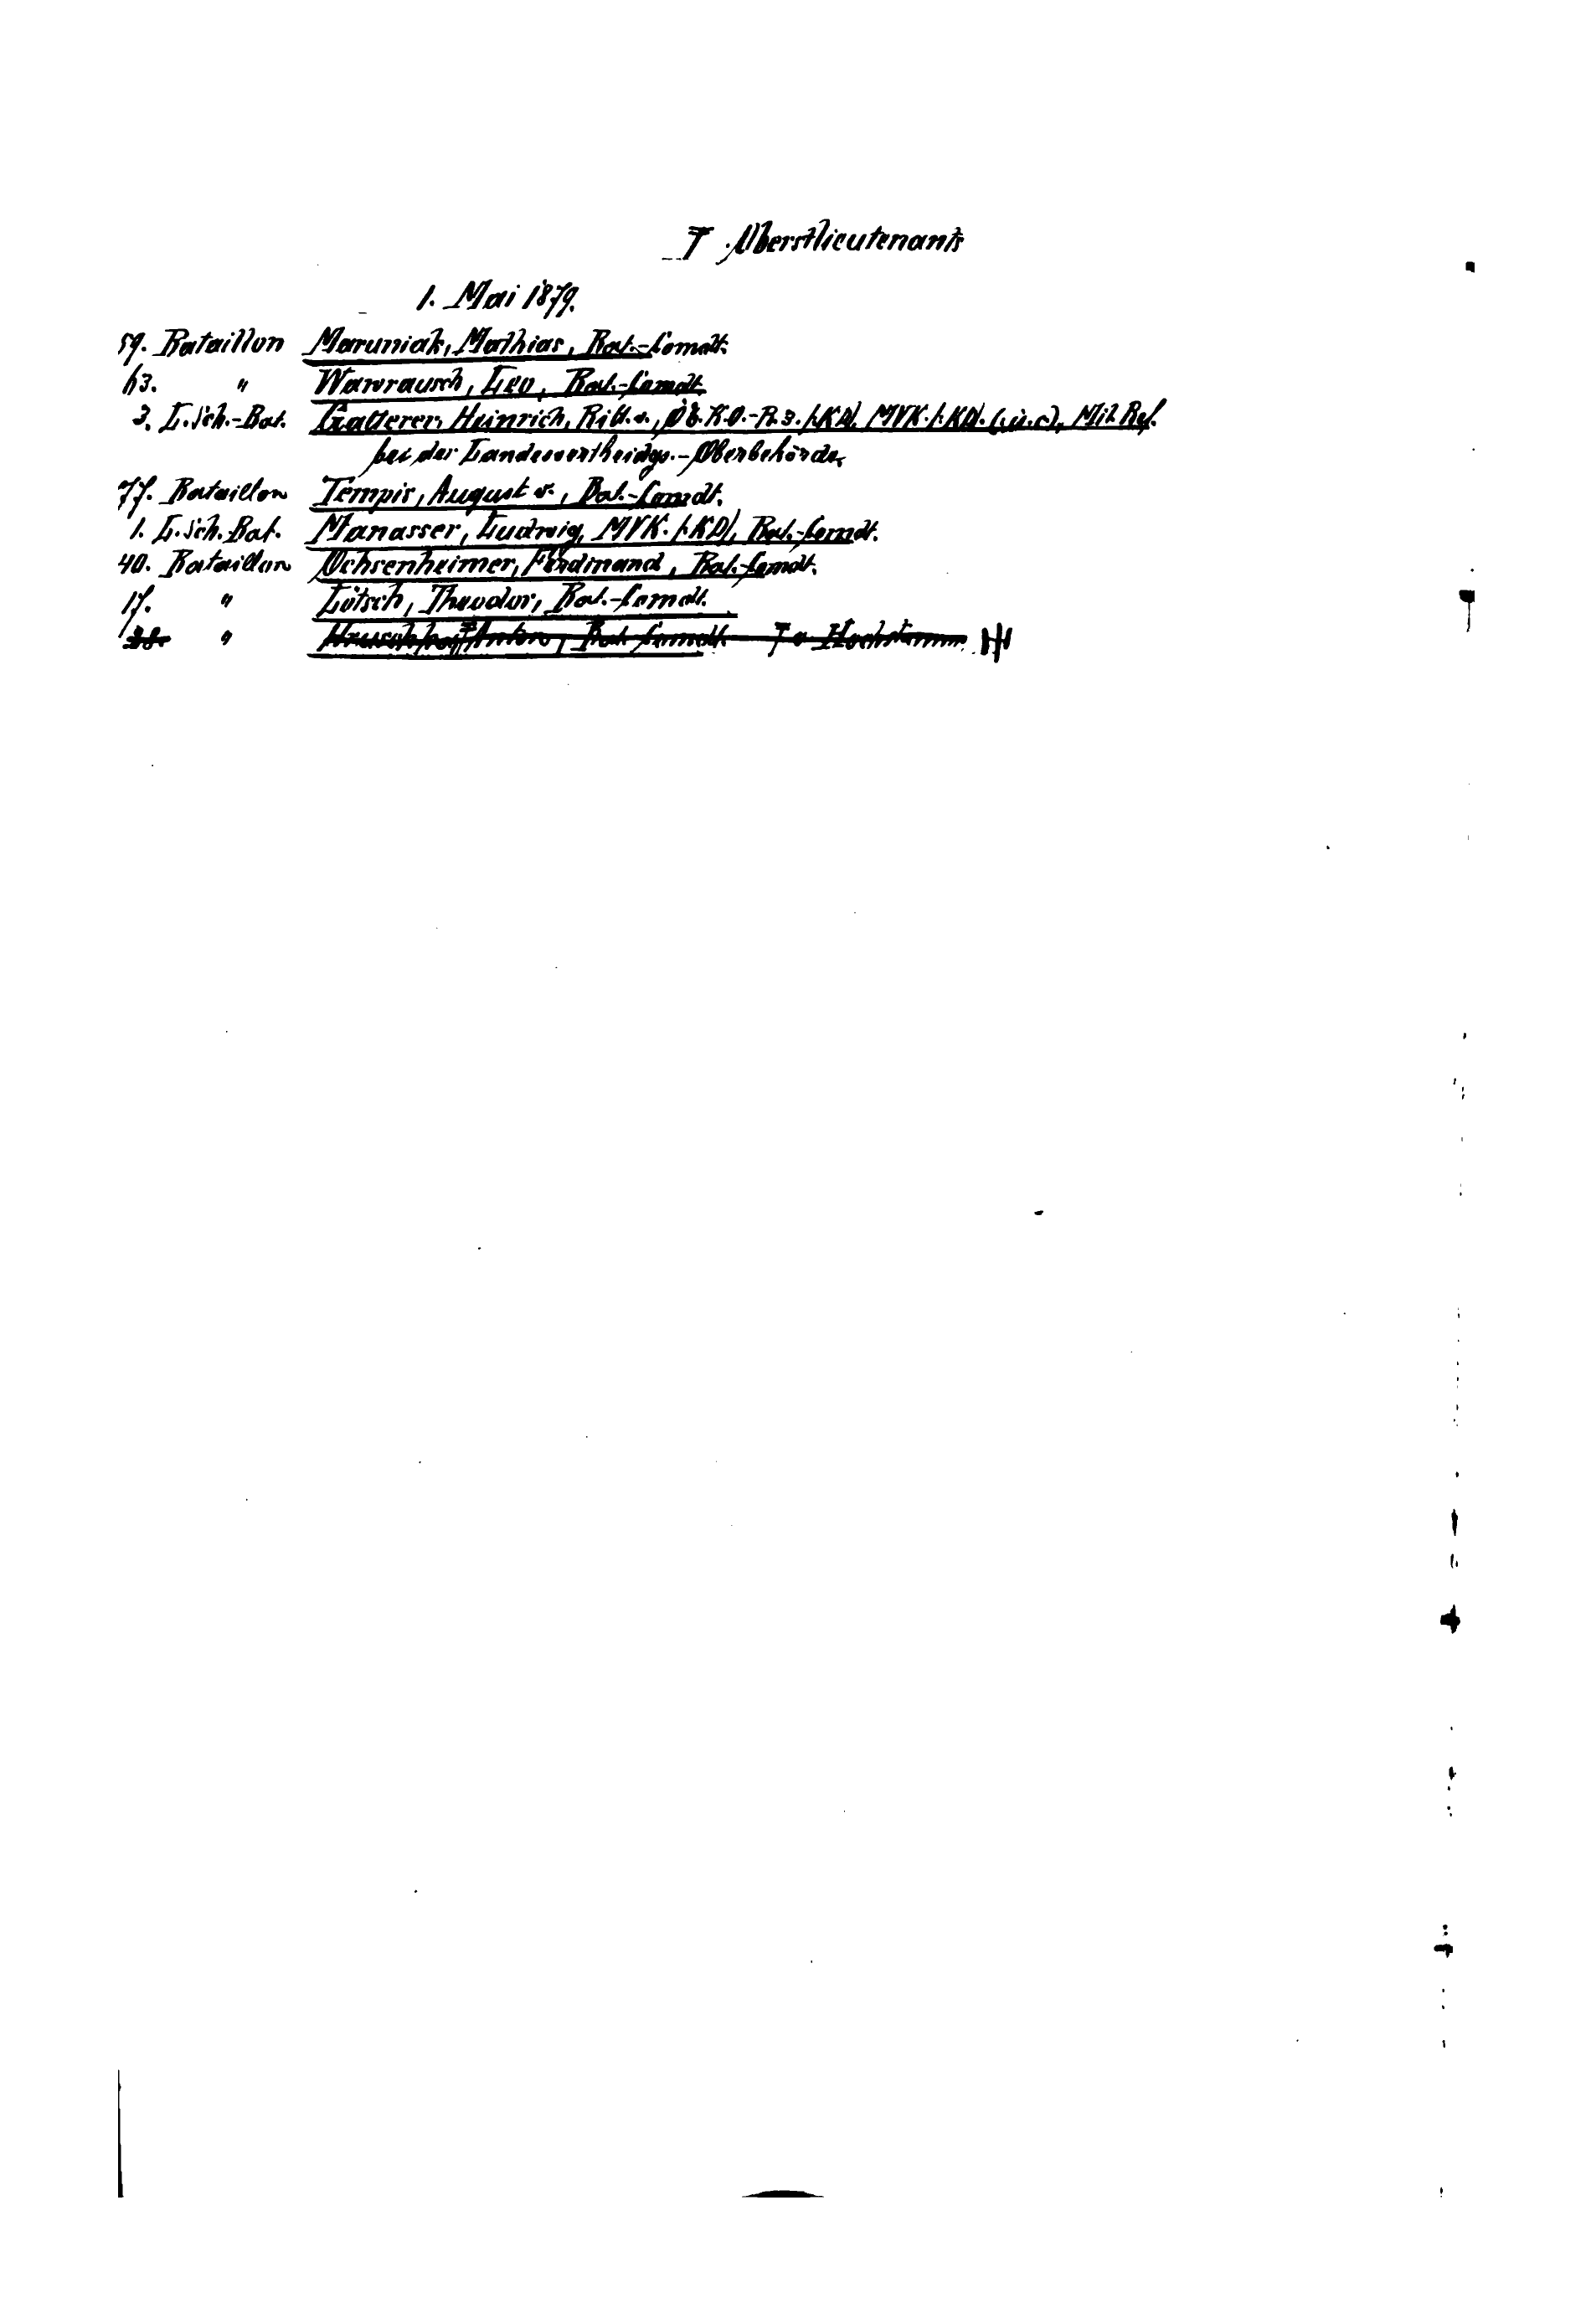 Oberstlieutenants
1. Mai 1879.
59. Bataillon Maruniak, Mathias, Bat.-Comdt.
63. " Wawrausch, Leo, Bat.-Comdt.
3. L.Sch.-Bat. Gatterer, Heinrich, Ritt. v., ÖE.K.O.-R. 3. (KD), MVK. (KD). (ü.c), Mil. Ref.
bei der Landesvertheidgs.-Oberbehörde
77. Bataillon Tempis, August v., Bat.-Comdt.
1. L.Sch.-Bat. Manasser, Ludwig, MVK. (KD), Bat.-Comdt.
40. Bataillon Ochsenheimer, Ferdinand, Bat.-Comdt.
17. " Lötsch, Theodor, Bat.-Comdt.
38. " Anton, Bat. Comdt.